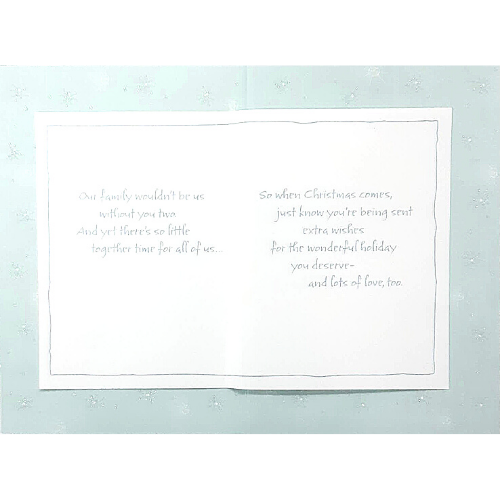 Our family wouldn't be us
without you two.
And yet there's so little
together time for all of us...
So when Christmas comes,
just know you're being sent
extra wishes
for the wonderful holiday
you deserve-
and lots of love, too.